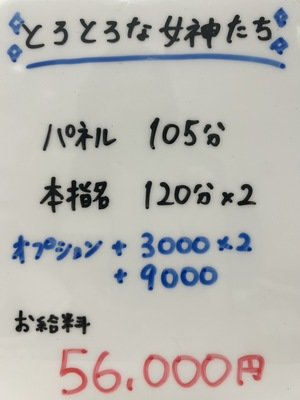 とろとろな女神たち
パネル 105分
本指名 120分×2
オプション + 3000×2
+ 9000
お給料
56,000円